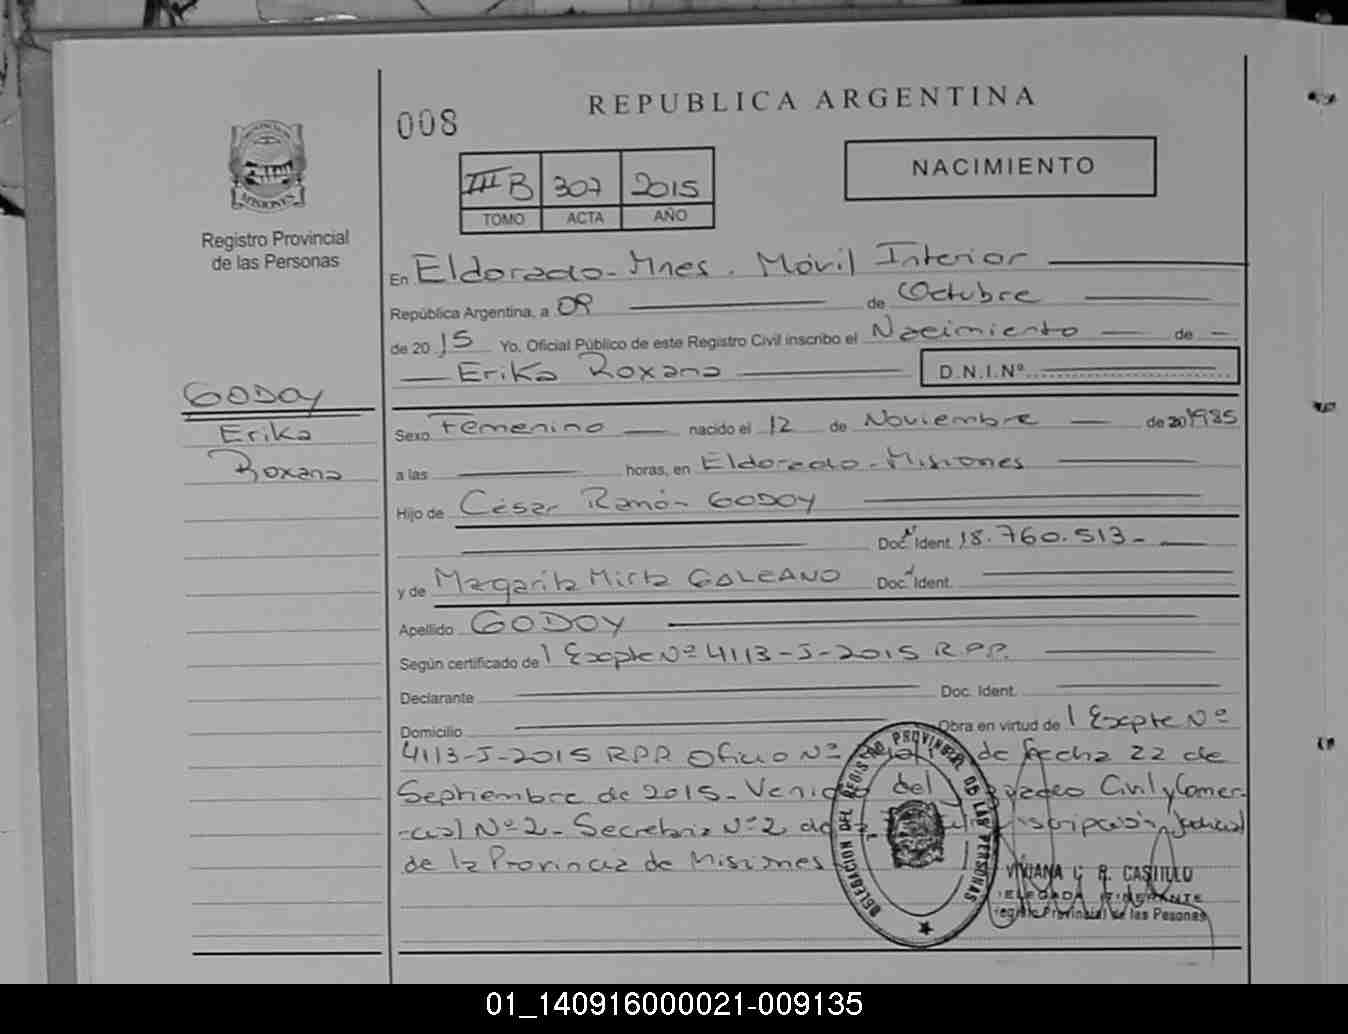 REPUBLICA ARGENTINA
008
NACIMIENTO
III B 307 2015
TOMO ACTA AÑO
MISIONES
Registro Provincial
de las Personas
En Eldorado - Mnes. Móvil Interior
República Argentina, a 09 de Octubre
de 2015 Yo, Oficial Público de este Registro Civil inscribo el Nacimiento de
Erika Roxana D.N.I.Nº
GODOY
Erika
Roxana
Sexo Femenino nacido el 12 de Noviembre de 20 1985
a las horas, en Eldorado - Misiones
Hijo de César Ramón GODOY
Doc. Ident. 18.760.513-
y de Margarita Mirta GALEANO Doc. Ident.
Apellido GODOY
Según certificado de 1 Expte Nº 4113-J-2015 R.P.P.
Declarante Doc. Ident.
Domicilio Obra en virtud de 1 Expte Nº
4113-J-2015 R.P.P. Oficio Nº de fecha 22 de
Septiembre de 2015- del Civil y Comer-
-cial Nº 2- Secretaria Nº 2, de Judicial
de la Provincia de Misiones
DELEGACION DEL REGISTRO PROVINCIAL DE LAS PERSONAS
VIVIANA C. R. CASTILLO
DELEGADA ITINERANTE
Registro Provincial de las Pesonas
01_140916000021-009135